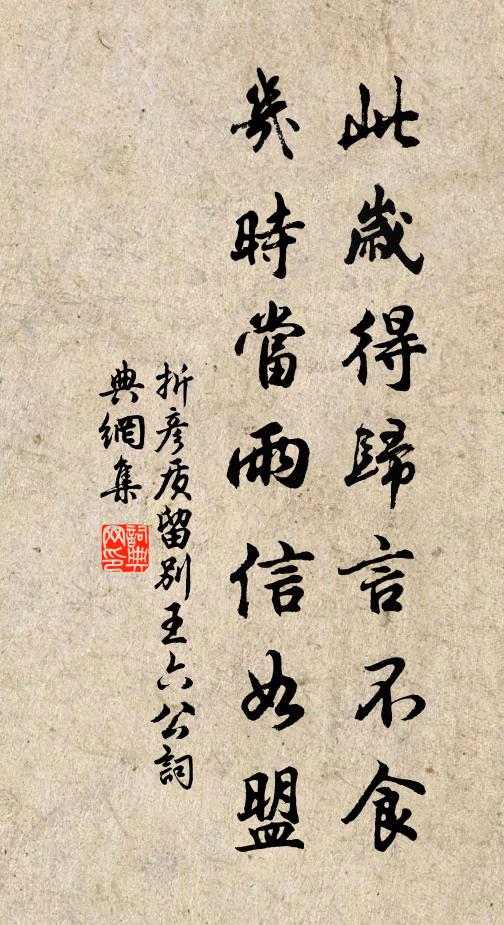 此歲得歸言不食
幾時當雨信如盟
折彥质留別王六公詞
典網集
詞典
网印